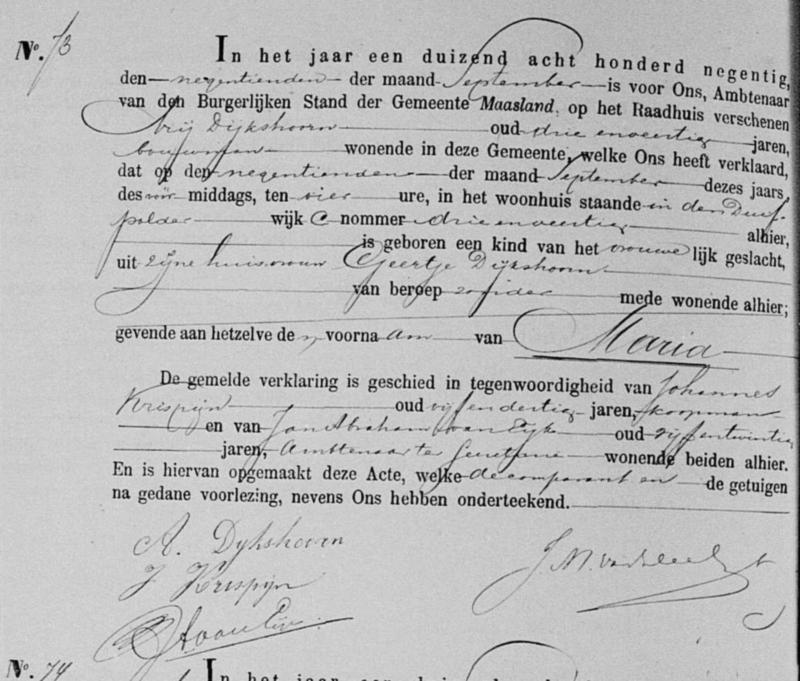 No. 73
In het jaar een duizend acht honderd negentig,
den negentienden der maand September is voor Ons, Ambtenaar
van den Burgerlijken Stand der Gemeente Maasland, op het Raadhuis verschenen
Arij Dijkshoorn oud drie en veertig jaren,
bouwman wonende in deze Gemeente, welke Ons heeft verklaard,
dat op den negentienden der maand September dezes jaars,
des voor middags, ten vier ure, in het woonhuis staande in den Duif-
polder wijk C nommer drie en veertig alhier,
is geboren een kind van het vrouwe lijk geslacht,
uit zijne huisvrouw Geertje Dijkshoorn
van beroep zonder mede wonende alhier;
gevende aan hetzelve de n voorna am van Maria
De gemelde verklaring is geschied in tegenwoordigheid van Johannes
Krispijn oud vijf en dertig jaren, koopman
en van Jan Abraham van Eijk oud vijf en twintig
jaren, Ambtenaar ter Secretarie wonende beiden alhier.
En is hiervan opgemaakt deze Acte, welke de comparant en de getuigen
na gedane voorlezing, nevens Ons hebben onderteekend.
A. Dijkshoorn
J Krispijn
JA van Eijk
No. 74
In het jaar een